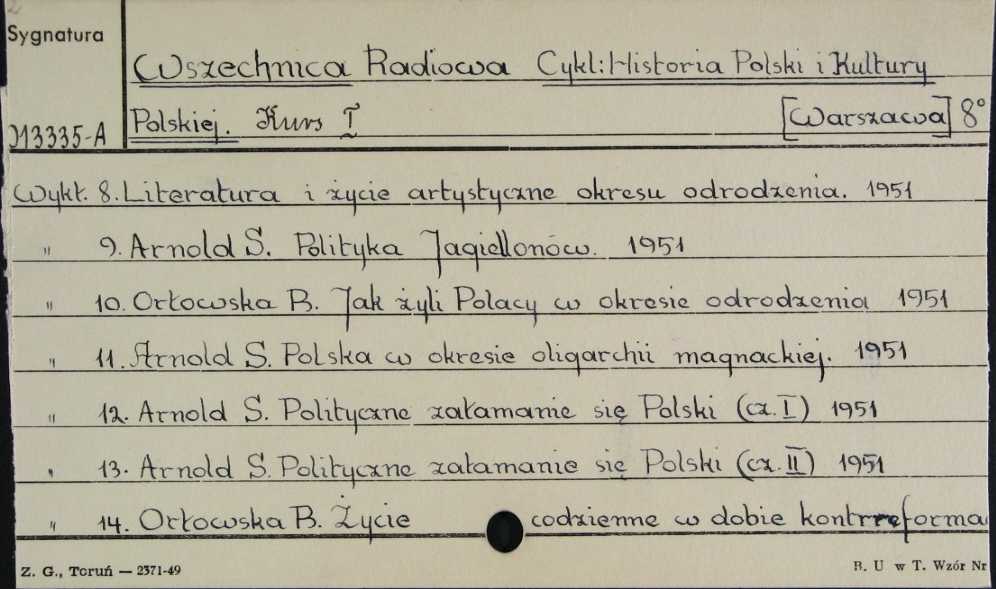 Sygnatura
Wszechnica Radiowa Cykl: Historia Polski i Kultury
Polskiej. Kurs I [Warszawa] 8°
013335-A
Wykł. 8. Literatura i życie artystyczne okresu odrodzenia. 1951
" 9. Arnold S. Polityka Jagiellonów. 1951
" 10. Orłowska B. Jak żyli Polacy w okresie odrodzenia 1951
" 11. Arnold S. Polska w okresie oligarchii magnackiej. 1951
" 12. Arnold S. Polityczne załamanie się Polski (cz. I) 1951
" 13. Arnold S. Polityczne załamanie się Polski (cz. II) 1951
" 14. Orłowska B. Życie codzienne w dobie kontrreforma
Z. G., Toruń — 2371-49 B. U w T. Wzór Nr